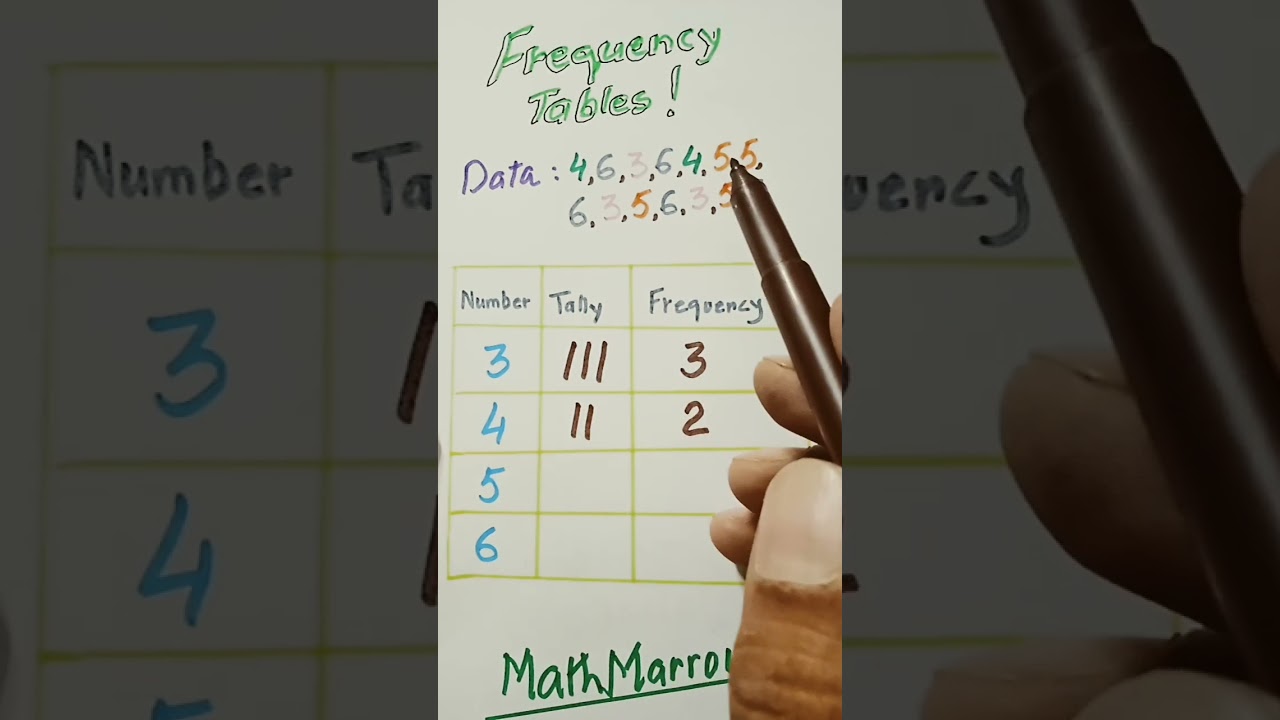 Frequency
Tables!
Data: 4,6,3,6,4,5,5,
6,3,5,6,3,5
Number Tally Frequency
3 III 3
4 II 2
5
6
MathMarro